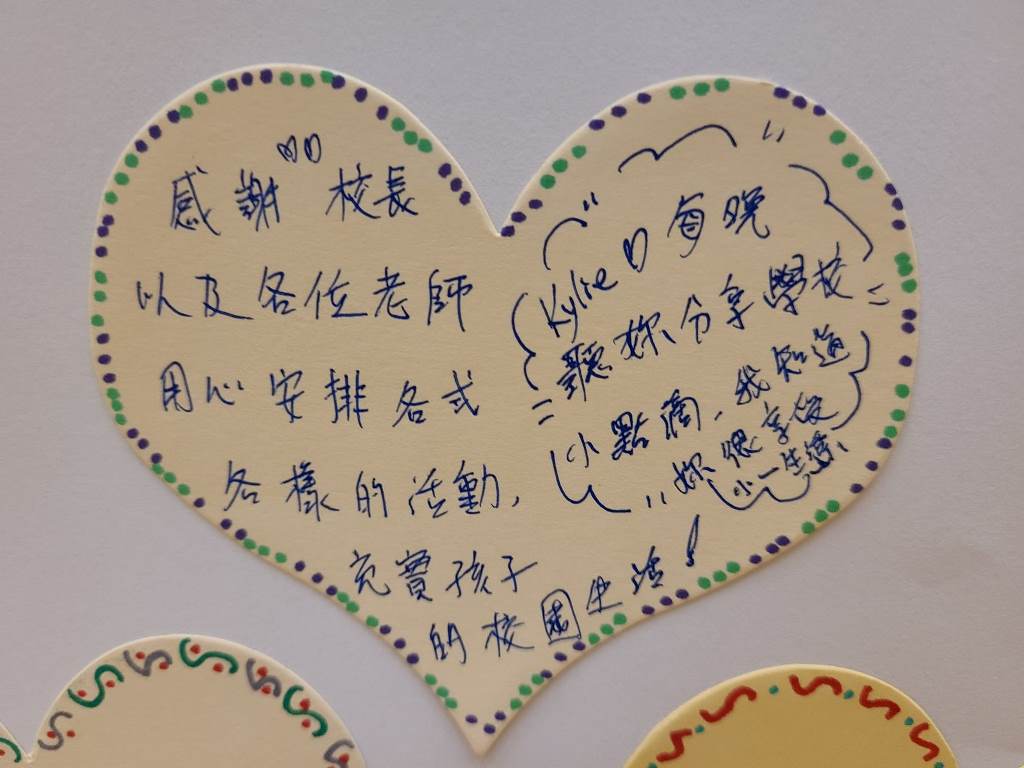 感謝 校長
以及各位老師
用心安排各式
各樣的活動,
充實孩子
的校園生活!
Kylie 每晚
聽妳分享學校
小點滴,我知道
妳很享受
小一生涯